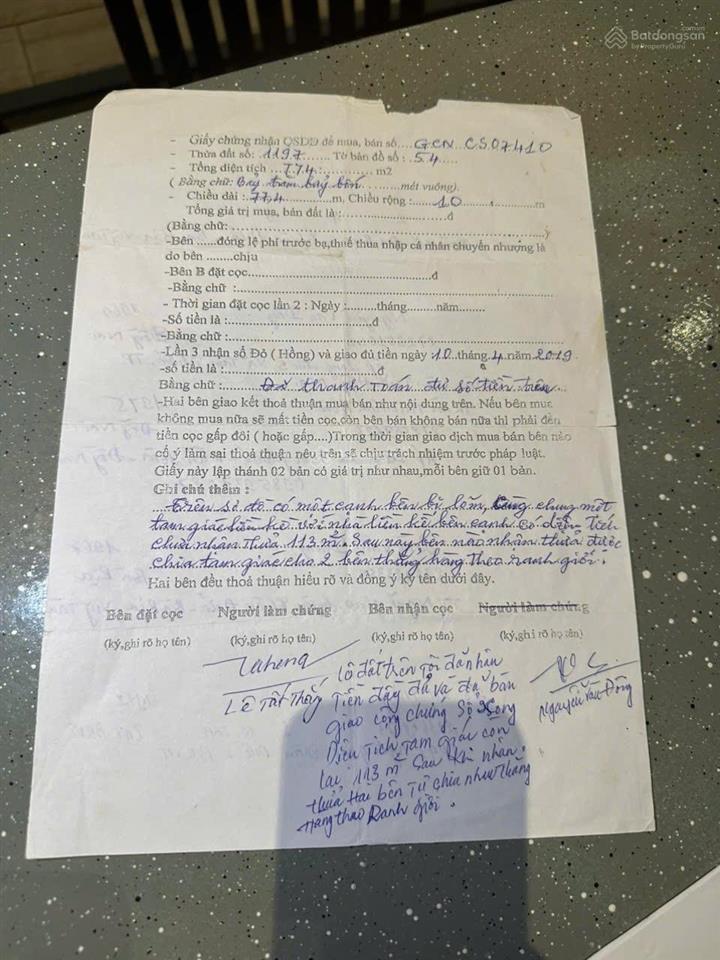 Batdongsan
by PropertyGuru
- Giấy chứng nhận QSDĐ để mua, bán số....GCN CS07410
- Thửa đất số: 1197....... Tờ bản đồ số : 54........
- Tổng diện tích ..774............. m2
( Bằng chữ: Bảy trăm bảy bốn.........mét vuông).
- Chiều dài :.77,4.........m, Chiều rộng :......10..............m
Tổng giá trị mua, bán đất là :.......................đ
(Bằng chữ: ..............................................................)
-Bên ......đóng lệ phí trước bạ,thuế thua nhập cá nhân chuyển nhượng là
do bên ........chịu
-Bên B đặt cọc.........................................đ
-Bằng chữ :.............................................................
- Thời gian đặt cọc lần 2 : Ngày :........tháng.........năm.......
-Số tiền là :...............................đ
-Bằng chữ:..............................................................
-Lần 3 nhận sổ Đỏ ( Hồng) và giao đủ tiền ngày .10..tháng.4.năm 2019.
-số tiền là :...............................đ
Bằng chữ :........Đã thanh toán đủ số tiền trên
-Hai bên giao kết thoả thuận mua bán như nội dung trên. Nếu bên mua
không mua nữa sẽ mất tiền cọc,còn bên bán không bán nữa thì phải đền
tiền cọc gấp đôi ( hoặc gấp....)Trong thời gian giao dịch mua bán bên nào
cố ý làm sai thoả thuận nêu trên sẽ chịu trách nhiệm trước pháp luật.
Giấy này lập thành 02 bản có giá trị như nhau,mỗi bên giữ 01 bản.
Ghi chú thêm :
....Trên sổ đỏ có một cạnh bên bị lõm, chung một
tam giác liền kề với nhà liền kề bên cạnh có diện tích
chưa nhận thửa 113 m². Sau này bên nào nhận thửa được
chia tam giác cho 2 bên thẳng hàng theo ranh giới.
Hai bên đều thoả thuận hiểu rõ và đồng ý ký tên dưới đây.
Bên đặt cọc Người làm chứng Bên nhận cọc Người làm chứng
(ký,ghi rõ họ tên) (ký,ghi rõ họ tên) (ký,ghi rõ họ tên) (ký,ghi rõ họ tên)
Lê Tất Thắng
lô đất trên tôi đã nhận
tiền đầy đủ và đã bàn
giao công chứng sổ xong
Diện tích tam giác còn
lại 113 m² sau khi nhận
thửa Hai bên tự chia như thẳng
hàng theo Ranh giới.
Nguyễn Văn Đông